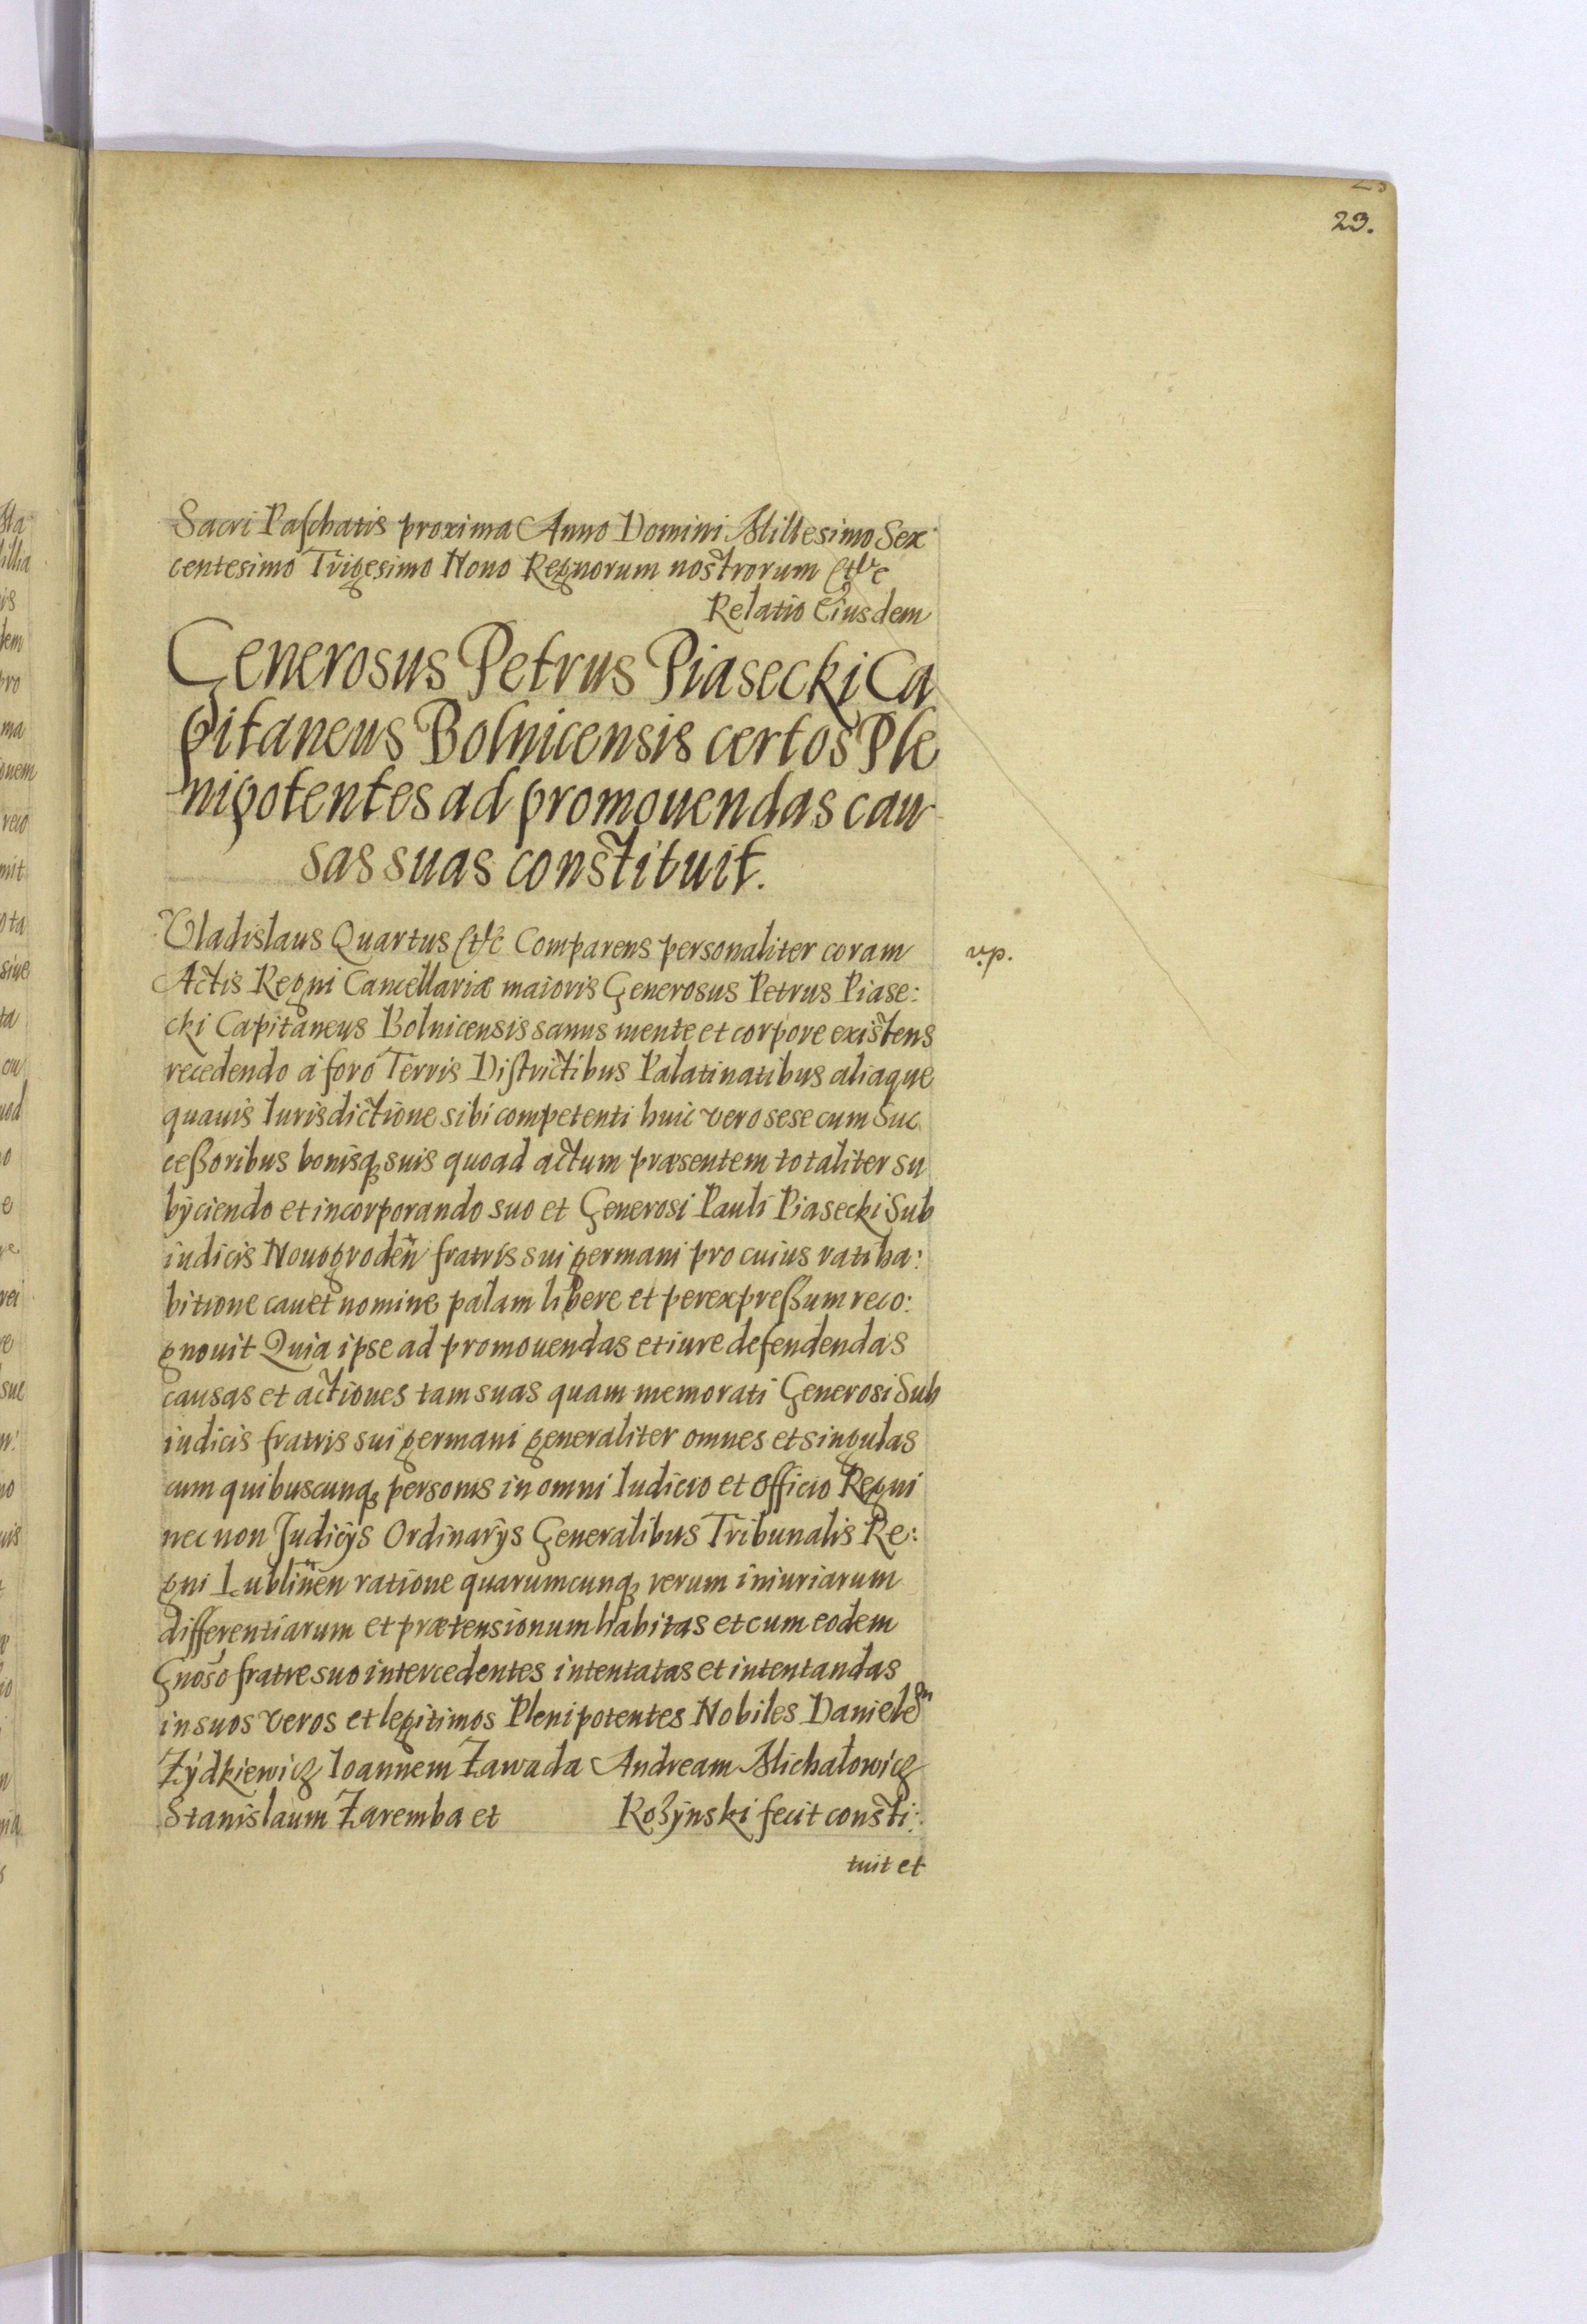 23.
Sacri Paschatis proxima Anno Domini Millesimo Sex
centesimo Trigesimo Nono Regnorum nostrorum etc
Relatio Eiusdem
Generosus Petrus Piasecki Ca
pitaneus Bolnicensis certos Ple
nipotentes ad promouendas cau
sas suas constituit.
Vladislaus Quartus etc Comparens personaliter coram
v.p.
Actis Regni Cancellariæ maioris Generosus Petrus Piase:
cki Capitaneus Bolnicensis sanus mente et corpore existens
recedendo à foro Terris Districtibus Palatinatibus aliaque
quauis Iurisdictione sibi competenti huic vero sese cum Suc
ceßoribus bonisq, suis quoad actum præsentem totaliter su
bÿciendo et incorporando suo et Generosi Pauli Piasecki Sub
iudicis Nouogroden fratris sui germani pro cuius ratiha:
bitione cauet nomine palam libere et per expreßum reco:
gnouit Quia ipse ad promouendas et iure defendendas
causas et actiones tam suas quam memorati Generosi Sub
iudicis fratris sui germani generaliter omnes et singulas
cum quibuscunq, personis in omni Iudicio et Officio Regni
nec non Judicÿs Ordinarÿs Generalibus Tribunalis Re:
gni Lublinen ratione quarumcunq, rerum iniuriarum
differentiarum et prætensionum habitas et cum eodem
Gnoso fratre suo intercedentes intentatas et intentandas
in suos veros et legitimos Plenipotentes Nobiles Danielem
Zÿdkiewicz Ioannem Zawada Andream Michalowicz
Stanislaum Zaremba et Kozÿnski fecit consti:
tuit et